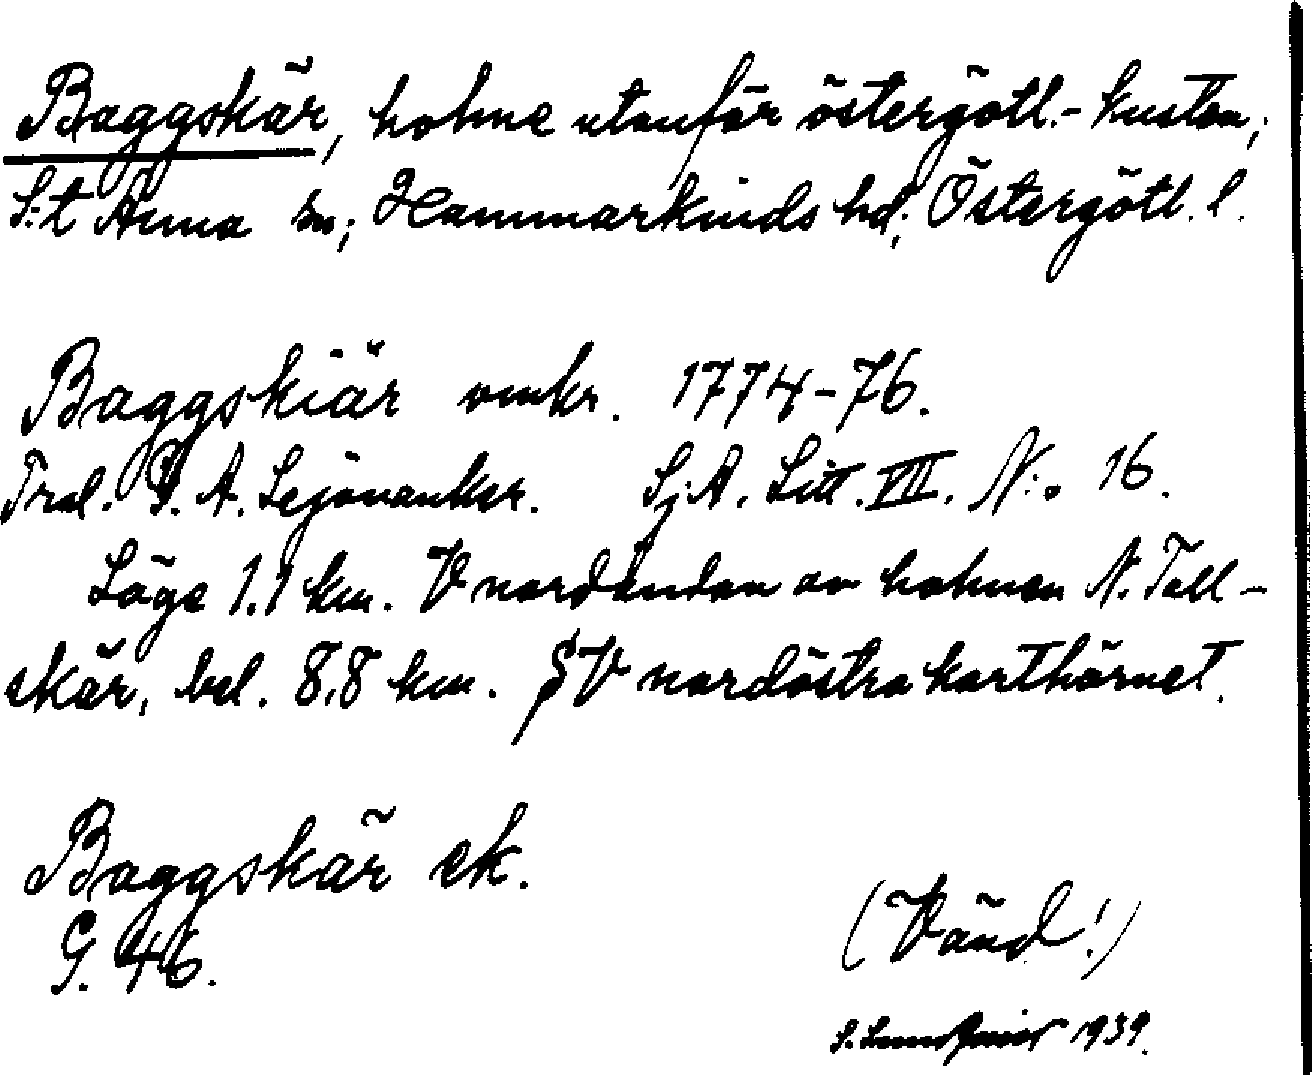 Baggskär, holme utanför östergötl.-kusten;
S:t Anna sn; Hammarkinds hd; Östergötl. l.
Baggskiär omkr. 1774-76.
Trol. P. A. Lejonanker. Sj.A. Litt. VIII. N:o 16.
Läge 1.1 km. V nordändan av holmen N. Tall-
skär, bel. 8,8 km. SV nordöstra karthörnet.
Baggskär ek.
G. 46.
(Vänd!)
S. 1939.